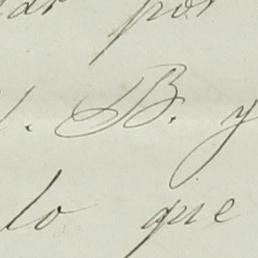 por
B. y
lo que